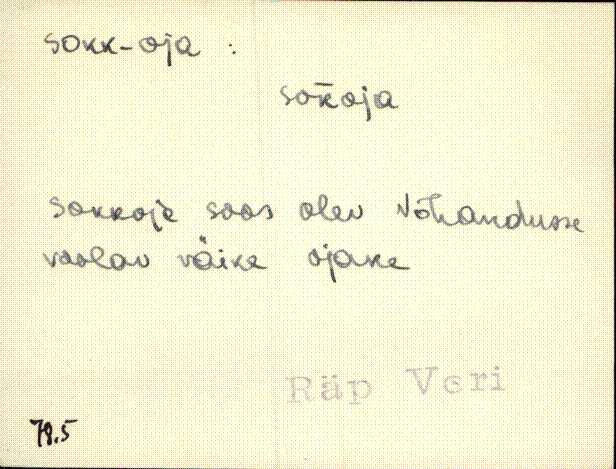 sokk-oja :
sok̄oja
sokkoja soos olev Võhandusse
voolav väike ojake
Räp Veri
79.5